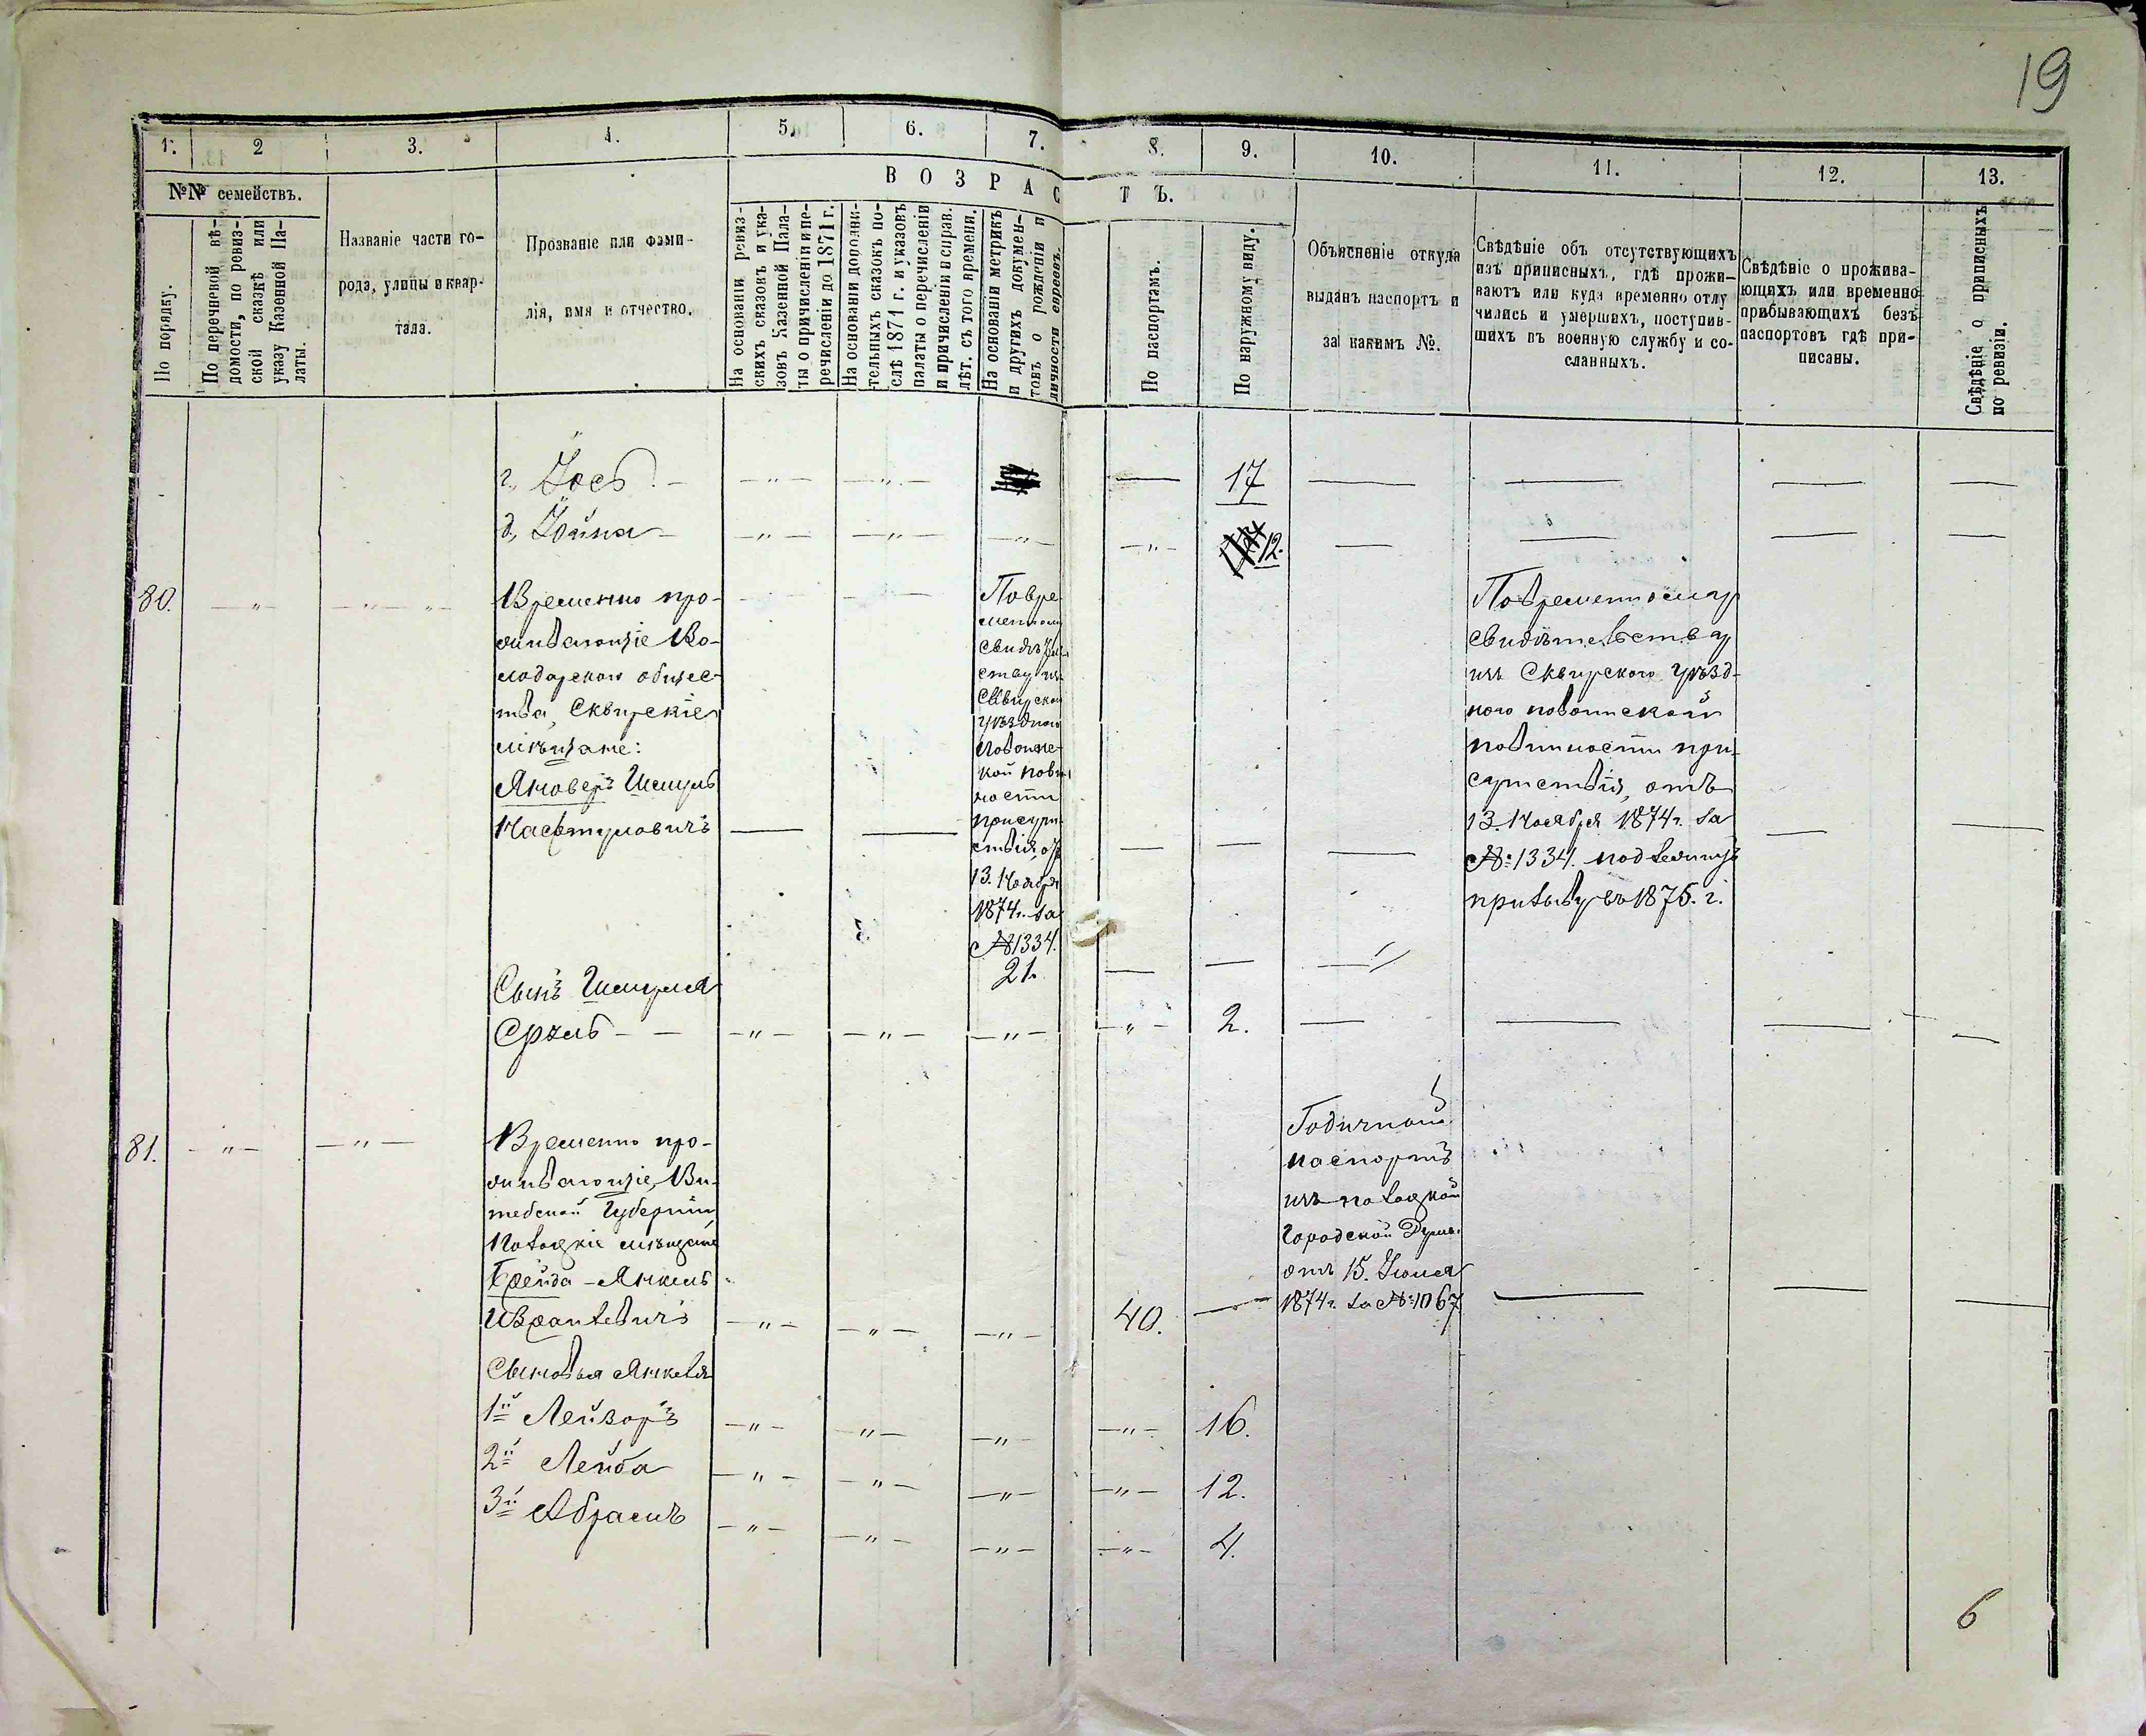 19
1. 2 3. 4. 5. 6. 7. 8. 9. 10. 11. 12. 13.
№№ семействъ.
По порядку.
По перечневой вѣ-
домости, по ревиз-
ской сказкѣ или
указу Казенной Па-
латы.
Названіе части го-
рода, улицы и квар-
тала.
Прозваніе или фами-
лія, имя и отчество.
ВОЗРАСТЪ.
На основаніи ревиз-
скихъ сказокъ и ука-
зовъ Казенной Пала-
ты о причисленіи и пе-
речисленіи до 1871 г.
На основаніи дополни-
тельныхъ сказокъ по-
слѣ 1871 г. и указовъ
палаты о перечисленіи
и причисленіи и справ.
лѣт. съ того времени.
На основаніи метрикъ
и другихъ докумен-
товъ о рожденіи и
личности евреевъ.
По паспортамъ.
По наружному виду.
Объясненіе откуда
выданъ паспортъ и
за какимъ №.
Свѣдѣніе объ отсутствующихъ
изъ приписныхъ, гдѣ прожи-
ваютъ или куда временно отлу
чились и умершихъ, поступив-
шихъ въ военную службу и со-
сланныхъ.
Свѣдѣніе о прожива-
ющихъ или временно
прибывающихъ безъ
паспортовъ гдѣ при-
писаны.
Свѣдѣніе о приписныхъ
по ревизіи.
г, Іось — 17
д, Іойна — 12.
80.
Временно про-
живающіе Во-
лодарского общес-
тва, Сквирскіе
мѣщане:
Яноверъ Шмуль
Нафтуловичъ
Повре
менном
свидѣтель
ству изъ
Сквирскаго
уѣзднаго
Повоинс-
кой пови
ности
присут-
ствія, отъ
13. Ноября
1874 г. за
№ 1334.
21.
По временному
свидѣтельству
изъ Сквирского Уѣзд-
ного повоинской
повинности при-
сутствія, отъ
13. Ноября 1874 г. за
№: 1334. подлежитъ
призыву въ 1875. г.
Сынъ Шмуля
Срэль — — 2.
81.
Временно про-
живающіе, Ви-
тебской Губерніи
Полоцкіе мѣщане
Янкель
40.
Годичной
паспортъ
изъ полоцкой
Городской Думы
отъ 15. Іюля
1874 г. за №: 1067
Сыновья Янкеля
1й Лейзоръ 16.
2й Лейба 12.
3й Абрамъ 4.
6